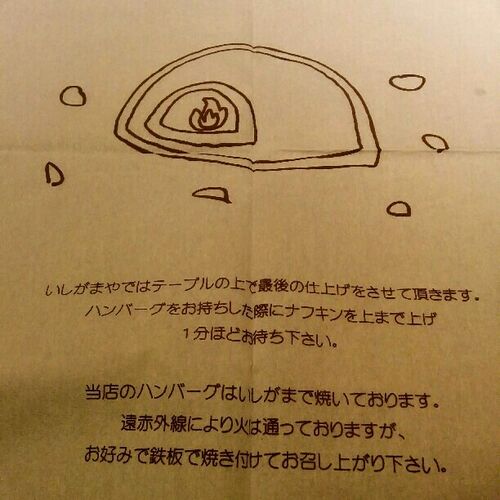 いしがまやではテーブルの上で最後の仕上げをさせて頂きます。
ハンバーグをお持ちした際にナフキンを上まで上げ
1分ほどお待ち下さい。
当店のハンバーグはいしがまで焼いております。
遠赤外線により火は通っておりますが、
お好みで鉄板で焼き付けてお召し上がり下さい。